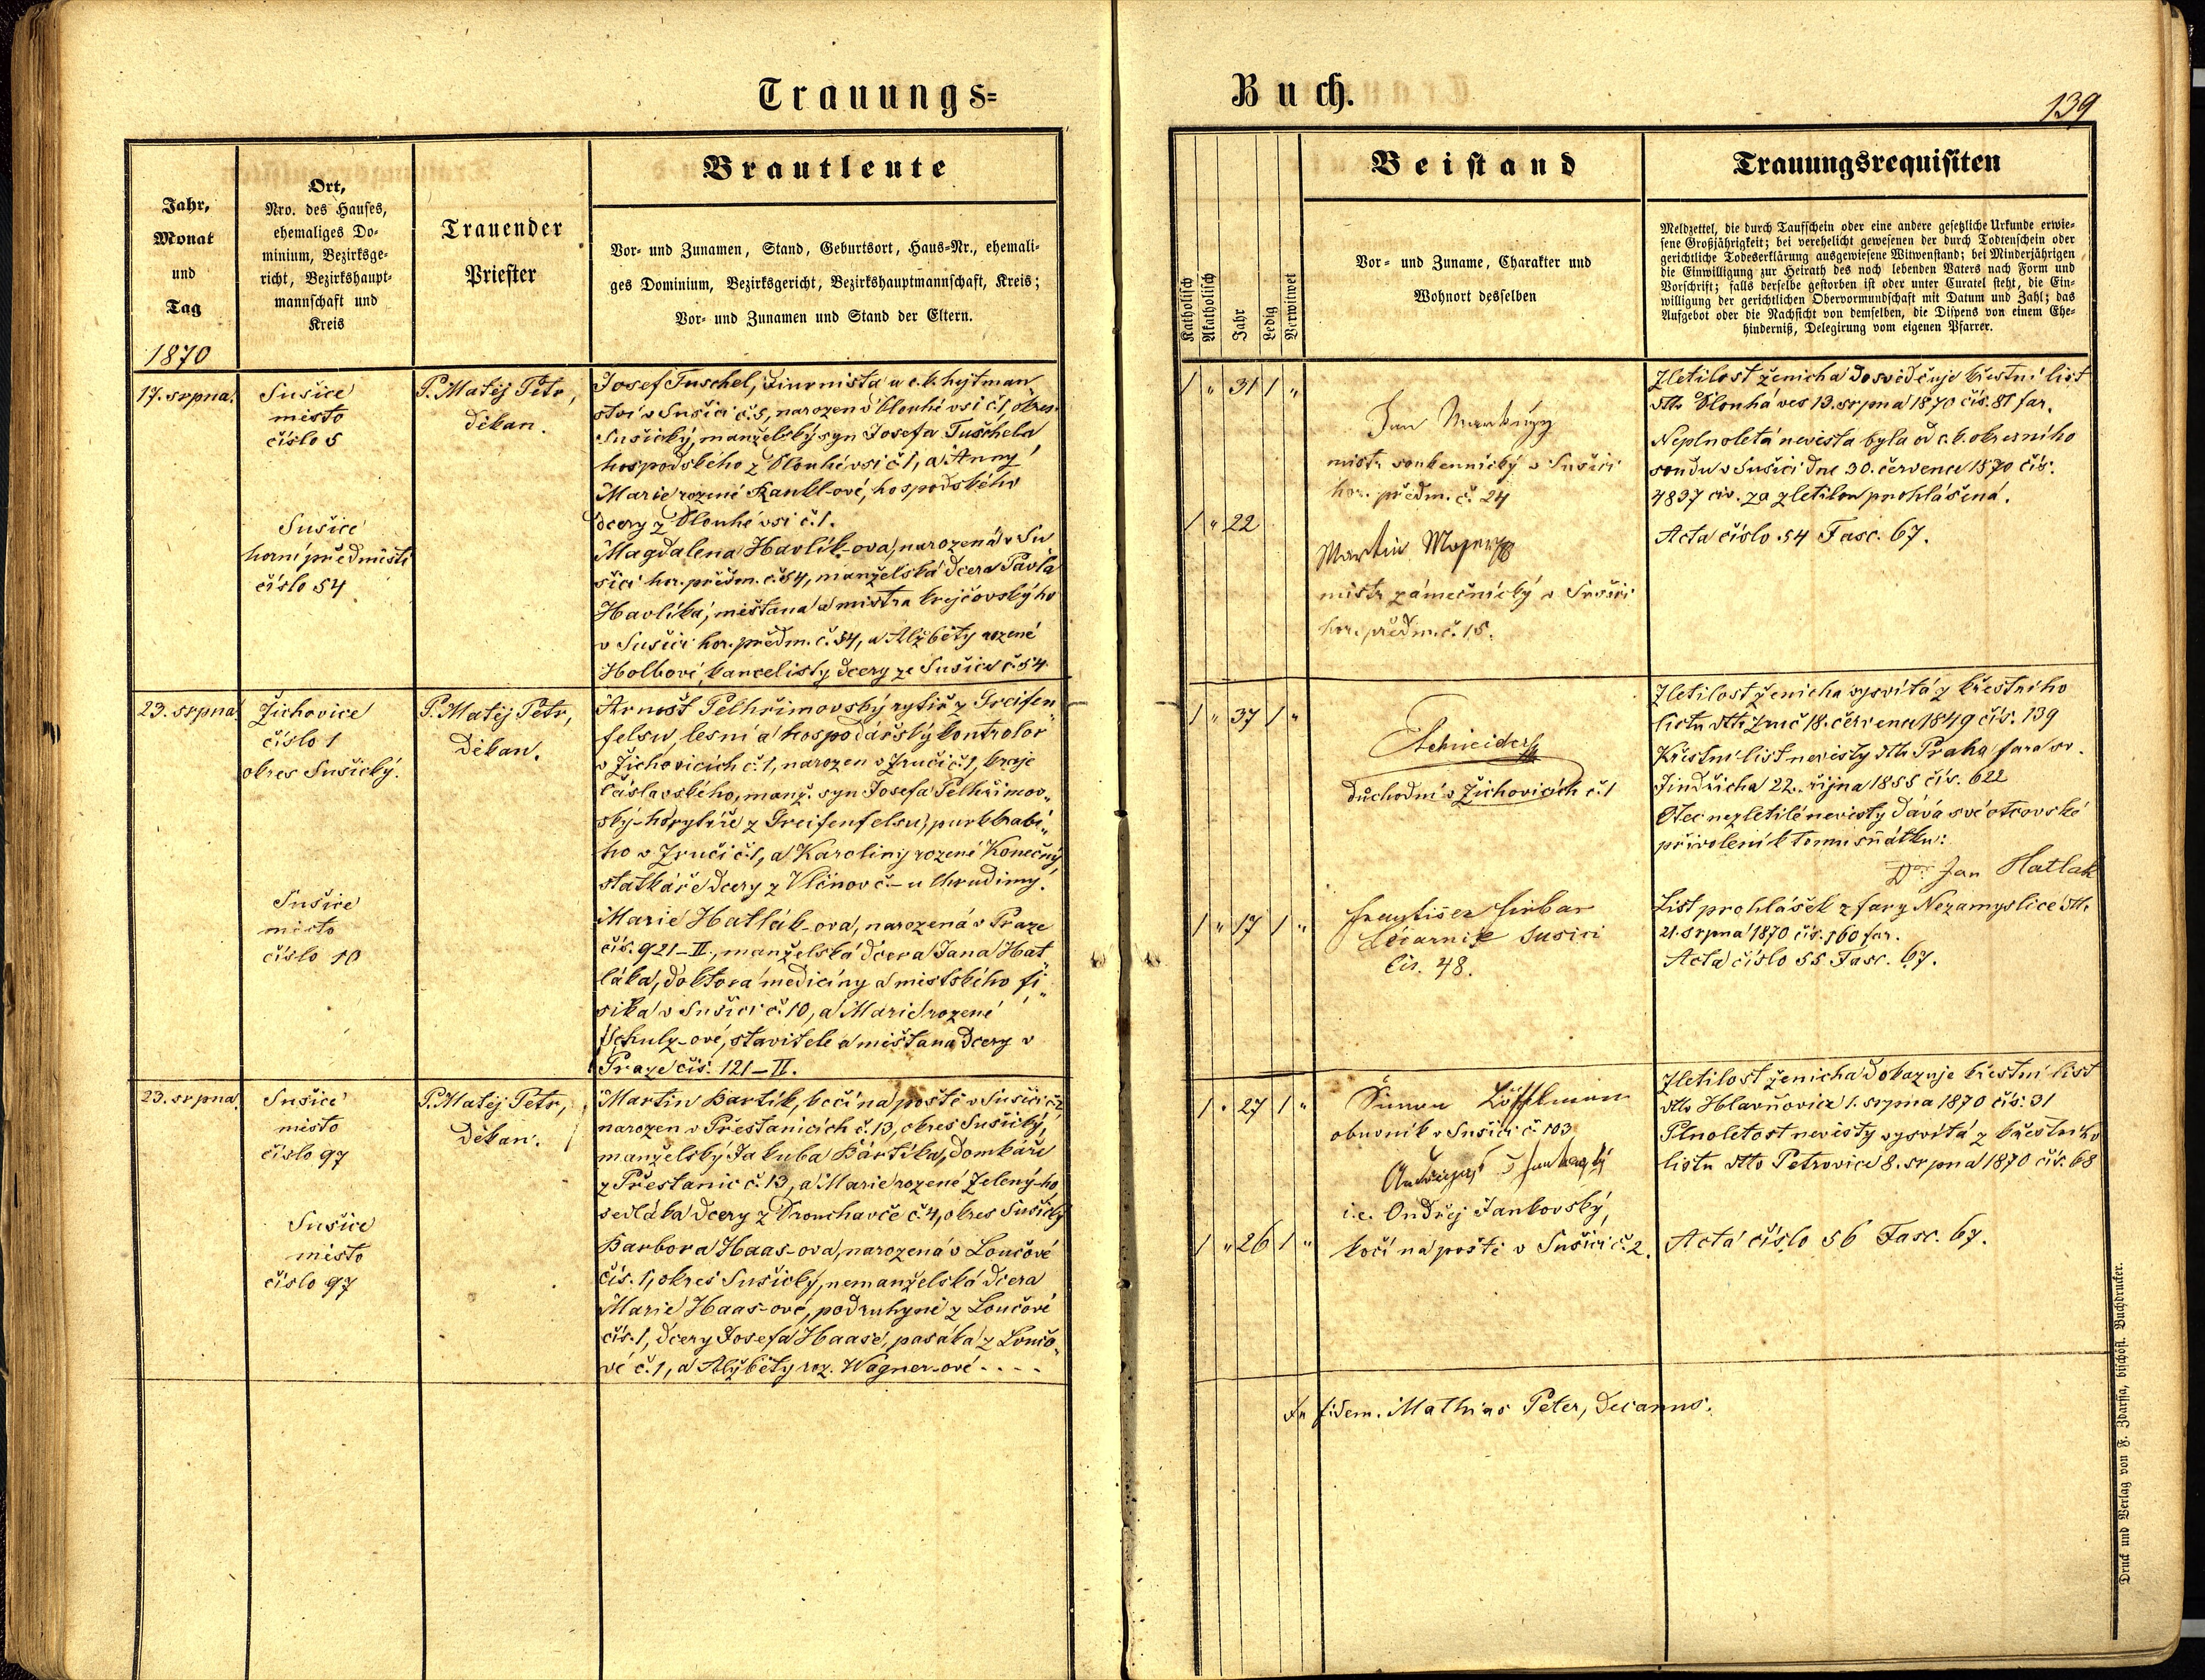 Trauungs=
Jahr,
Monat
und
Tag
1870
Ort,
Nro. des Hauses,
ehemaliges Do-
minium, Bezirksge-
richt, Bezirkshaupt-
mannschaft und
Kreis
Trauender
Priester
Brautleute
Vor- und Zunamen, Stand, Geburtsort, Haus-Nr., ehemali-
ges Dominium, Bezirksgericht, Bezirkshauptmannschaft, Kreis;
Vor- und Zunamen und Stand der Eltern.
17. srpna.
Sušice
město
číslo 5
Sušice
horní předměstí
číslo 54
P. Matěj Petr,
děkan.
Josef Tuschel, diurnista u c. k. hejtman
ství v Sušici č. 5, narozen v Dlouhé vsi č. 1, okres
Sušický, manželský syn Josefa Tuschela
hospodského z Dlouhé vsi č. 1, a Anny
Marie rozené Rankl-ové, hospodského
dcery z Dlouhé vsi č. 1.
Magdalena Havlík-ova, narozená v Su
šici hor. předm. č. 54, manželská dcera Pavla
Havlíka, měšťana a mistra krejčovského
v Sušici hor. předm. č. 54, a Alžběty rozené
Holbové, kancelisty dcery ze Sušice č. 54
23. srpna
Žichovice
číslo 1
okres Sušický.
Sušice
město
číslo 10
P. Matěj Petr,
děkan.
Arnošt Pelhřimovský rytíř z Greifen
felsu, lesní a hospodářský kontrolor
v Žichovicích č. 1, narozen v Zruči č. 1, kraje
Čáslavského, manž. syn Josefa Pelhřimov„
ský-ho rytíře z Greifenfelsu, purkrabí„
ho v Zruči č. 1, a Karoliny rozené Konečný
statkáře dcery z Vlčnov č. – u Chrudimy.
Marie Hatlák-ova, narozená v Praze
čís. 921–II., manželská dcera Jana Hat
láka, doktora medicíny a městského fi„
sika v Sušici č. 10, a Marie rozené
Schulz-ové, stavitele a měšťana dcery v
Praze čís. 121–II.
23. srpna.
Sušice
město
číslo 97
Sušice
město
číslo 97
P. Matěj Petr,
děkan.
Martin Bartík, kočí na poště v Sušici č. 2,
narozen v Přestanicích č. 13, okres Sušický,
manželský Jakuba Bártíka, domkáře
z Přestanic č. 13, a Marie rozené Zelený-ho
sedláka dcery z Drouhavče č. 4, okres Sušický
Barbora Haas-ova, narozená v Loučové
čís. 1, okres Sušický, nemanželská dcera
Marie Haas-ové, podruhyně z Loučové
čís. 1, dcery Josefa Haase, pasáka z Loučo„
vé č. 1, a Alžběty roz. Wagner-ové . . . .
Buch.
139
Katholisch
Akatholisch
Jahr
Ledig
Verwitwet
Beistand
Vor- und Zuname, Charakter und
Wohnort desselben
Trauungsrequisiten
Meldzettel, die durch Taufschein oder eine andere gesetzliche Urkunde erwie-
sene Großjährigkeit; bei verehelicht gewesenen der durch Todtenschein oder
gerichtliche Todeserklärung ausgewiesene Witwenstand; bei Minderjährigen
die Einwilligung zur Heirath des noch lebenden Vaters nach Form und
Vorschrift; falls derselbe gestorben ist oder unter Curatel steht, die Ein-
willigung der gerichtlichen Obervormundschaft mit Datum und Zahl; das
Aufgebot oder die Nachsicht von demselben, die Dispens von einem Ehe-
hinderniß, Delegirung vom eigenen Pfarrer.
1 „ 31 1 „
1 „ 22
Jan
mistr soukennický v Sušici
hor. předm. č. 24
Martin
mistr zámečnický v Sušici
hor. předm. č. 15.
Zletilost ženicha dosvědčuje křestní list
dtto Dlouhá ves 13. srpna 1870 čís. 81 far.
Neplnoletá nevěsta byla od c. k. okresního
soudu v Sušici dne 30. července 1870 čís.
4837 civ. za zletilou prohlášená.
Acta číslo 54 Fasc. 67.
1 „ 37 1 „
1 „ 17 1 „
Schneider
důchodní v Žichovicích č. 1
František
Lékárník Sušici
čís. 48.
Zletilost ženicha vysvítá z křestního
listu dtto Zruč 18. června 1849 čís. 139
Křestní list nevěsty dtto Praha fara sv.
Jindřicha 22. října 1855 čís. 622
Otec nezletilé nevěsty dává své otcovské
přivolení k tomu sňatku:
Dr. Jan Hatlak
List prohlášek z fary Nezamyslice dtto
21. srpna 1870 čís. 160 far.
Acta číslo 55 Fasc. 67.
1 „ 27 1 „
1 „ 26 1 „
Šimon Löffelmann
obuvník v Sušici č. 103
i. e. Ondřej Jankovský,
kočí na poště v Sušici č. 2.
Zletilost ženicha dokazuje křestní list
dtto Hlavňovice 1. srpna 1870 čís. 31
Plnoletost nevěsty vysvítá z křestního
listu dtto Petrovice 8. srpna 1870 čís. 68
Acta číslo 56 Fasc. 67.
In fidem. Mathias Peter, Decanus.
Druck und Verlag von F. Zdarssa, bischöfl. Buchdrucker.